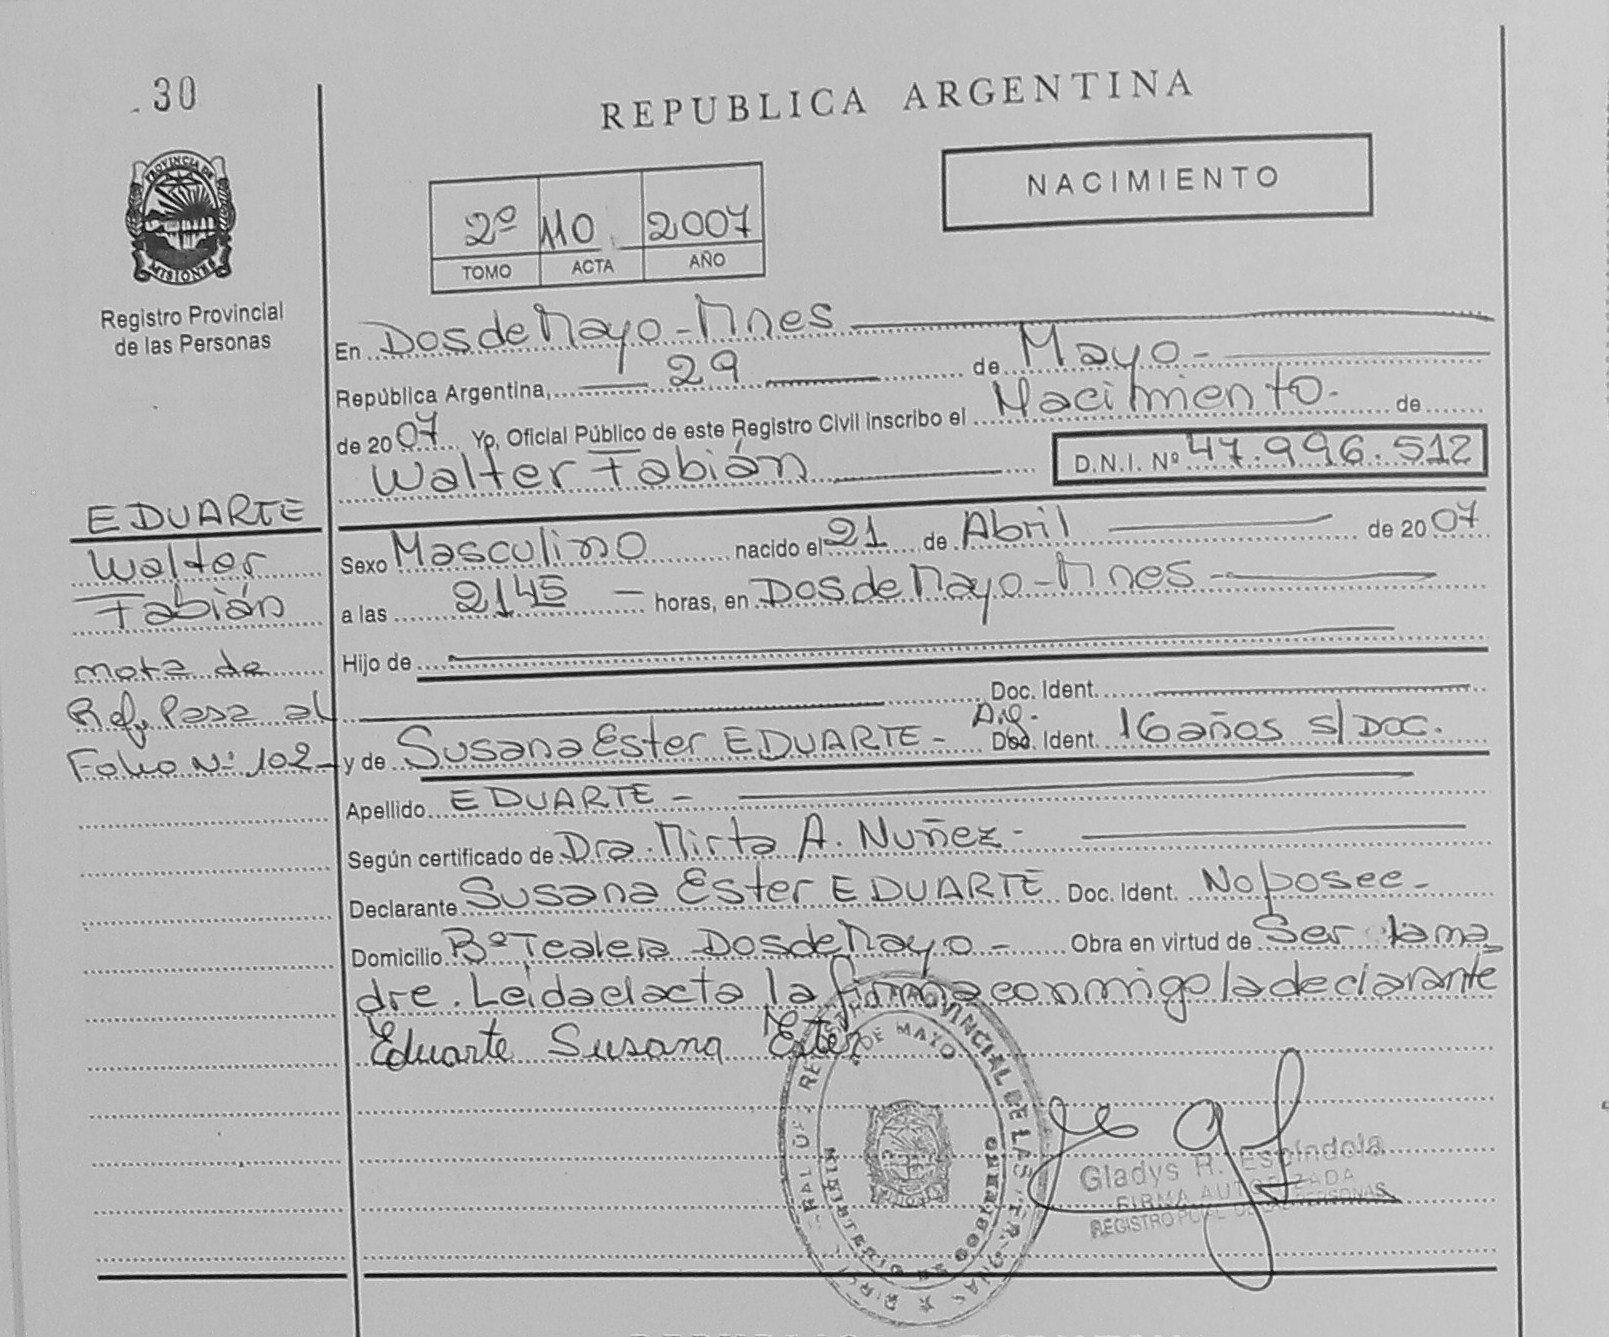 30
REPUBLICA ARGENTINA
PROVINCIA DE
MISIONES
Registro Provincial
de las Personas
2º 110 2007
TOMO ACTA AÑO
NACIMIENTO
En Dos de Mayo - Mnes
República Argentina, 29 de Mayo -
de 2007 Yo, Oficial Público de este Registro Civil inscribo el Nacimiento - de
Walter Fabián D.N.I. Nº 47.996.512
EDUARTE
Walter
Fabián
nota de
Ref. Pasa al
Folio Nº 102 -
Sexo Masculino nacido el 21 de Abril de 2007
a las 2145 - horas, en Dos de Mayo - Mnes -
Hijo de
Doc. Ident.
y de Susana Ester EDUARTE - Arg. Doc. Ident. 16 años s/ DOC.
Apellido EDUARTE -
Según certificado de Dra. Mirta A. Nuñez -
Declarante Susana Ester EDUARTE Doc. Ident. No posee -
Domicilio Bº Tealera Dos de Mayo - Obra en virtud de Ser la ma
dre. Leida el acta la firma conmigo la declarante
Eduarte Susana Ester
DE MAYO
PROVINCIAL DE LAS
MINISTERIO DE GOBIERNO
Gladys R. Espíndola
FIRMA AUTORIZADA
REGISTRO PCIAL. DE LAS PERSONAS